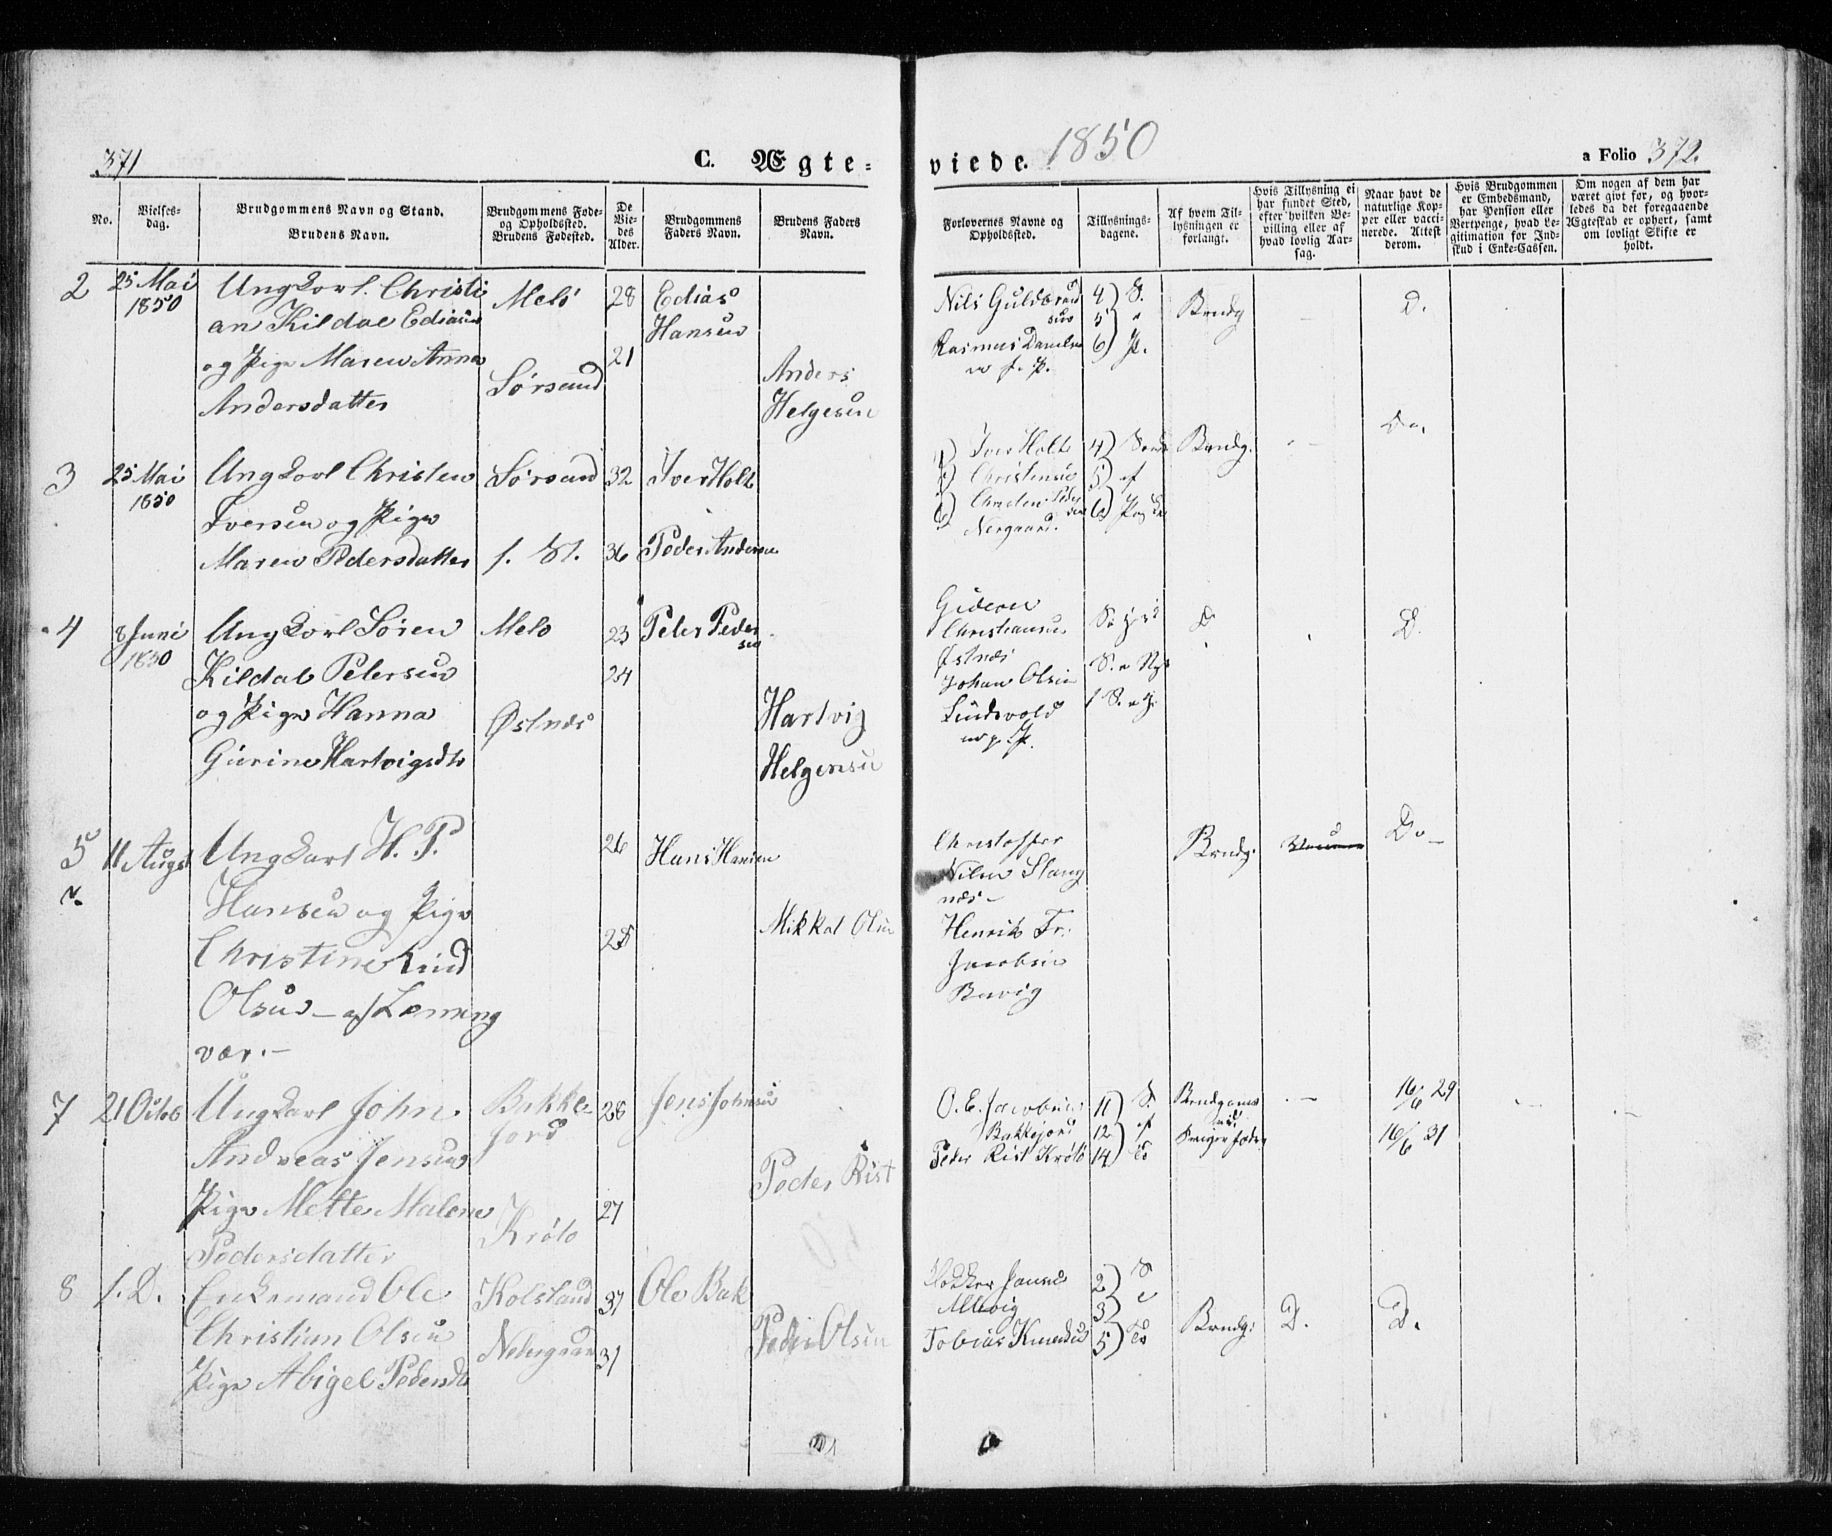 371
C. Ægte-
viede. 1850
a Folio 372.
No.
Vielses-
dag.
Brudgommens Navn og Stand.
Brudens Navn.
Brudgommens Føde-
og Opholdssted.
Brudens Fødested.
De
Vie-
des
Alder.
Brudgommens
Faders Navn.
Brudens Faders
Navn.
Forlovernes Navne og
Opholdssted.
Tillysnings-
dagene.
Af hvem Til-
lysningen er
forlangt.
Hvis Tillysning ei
har fundet Sted,
efter hvilken Be-
villing eller af
hvad lovlig Aar-
sag.
Naar havt de
naturlige Kop-
per eller vacci-
nerede. Attest
derom.
Hvis Brudgommen
er Embedsmand,
har Pension eller
Vertpenge, hvad Le-
gitimation for Ind-
skud i Enke-Cassen.
Om nogen af dem har
været givt før, og hvor-
ledes da det foregaaende
Ægteskab er ophørt, samt
om lovligt Skifte er
holdt.
2
25 Mai
1850
Ungkarl Christi
an Kildal Ediasen
og Pige Maren Anna
Andersdatter
Melø
Sørsand
28
21
Edias
Hansen
Anders
Helgesen
Nils Guldbrand
sen
Rasmus Danielsen
4) S.
5) "
6) P.
Brudg
D.
3
25 Mai
1850
Ungkarl Christen
Iversen og Pige
Maren Pedersdatter
Sørsand
f. St.
32
36
Iver Holt
Peder Andersen
Iver Holt
Christensen
Christen Peder
sen
Nergaard.
4)
5) af
6)
Brudg.
Do.
4
8 Juni
1850
Ungkarl Søren
Kildal Petersen
og Pige Hanna
Gurine Hartvigsdtr
Melø
Østnæs
23
24
Peter Peder
sen
Hartvig
Helgensen
Gideon
Christiansen
Østnæs
Johan Olsen
Lindsvold
D.
5
11 August
Ungkarl H. P.
Hansen og Pige
Christine Lind
Olsen – af Lemming
vær. –
26
28
Hans Hansen
Mikkal Olsen
Christoffer
Nilsen Stang
næs –
Henrik Fr.
Jacobsen
Bavig
Brudg.
Do –
7
21 Octob
Ungkarl John
Andreas Jensen
Pige Mette Malene
Pedersdatter
Bakke-
jord
Krølø
28
27
Jens Johnsen
Peder Rist
O. E. Jacobsen
Bakkejord
Peder Rist Krølø
11) S.
12) af
14)
Brudgommen
Sviger fader
16/6 29
16/6 31
8
f. D.
Enkemand Ole
Christian Olsen
Pige Abigel Pedersdtr
Kolsland
Nedergaard
37
31
Ole Bak
Peder Olsen
Tobias Knudsen
2) S
3)
5)
Brudg:
D.
D.